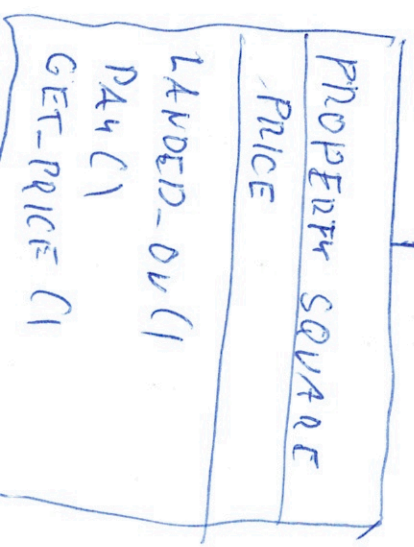 PROPERTY SQUARE
PRICE
LANDED_ON()
PAY()
GET_PRICE()